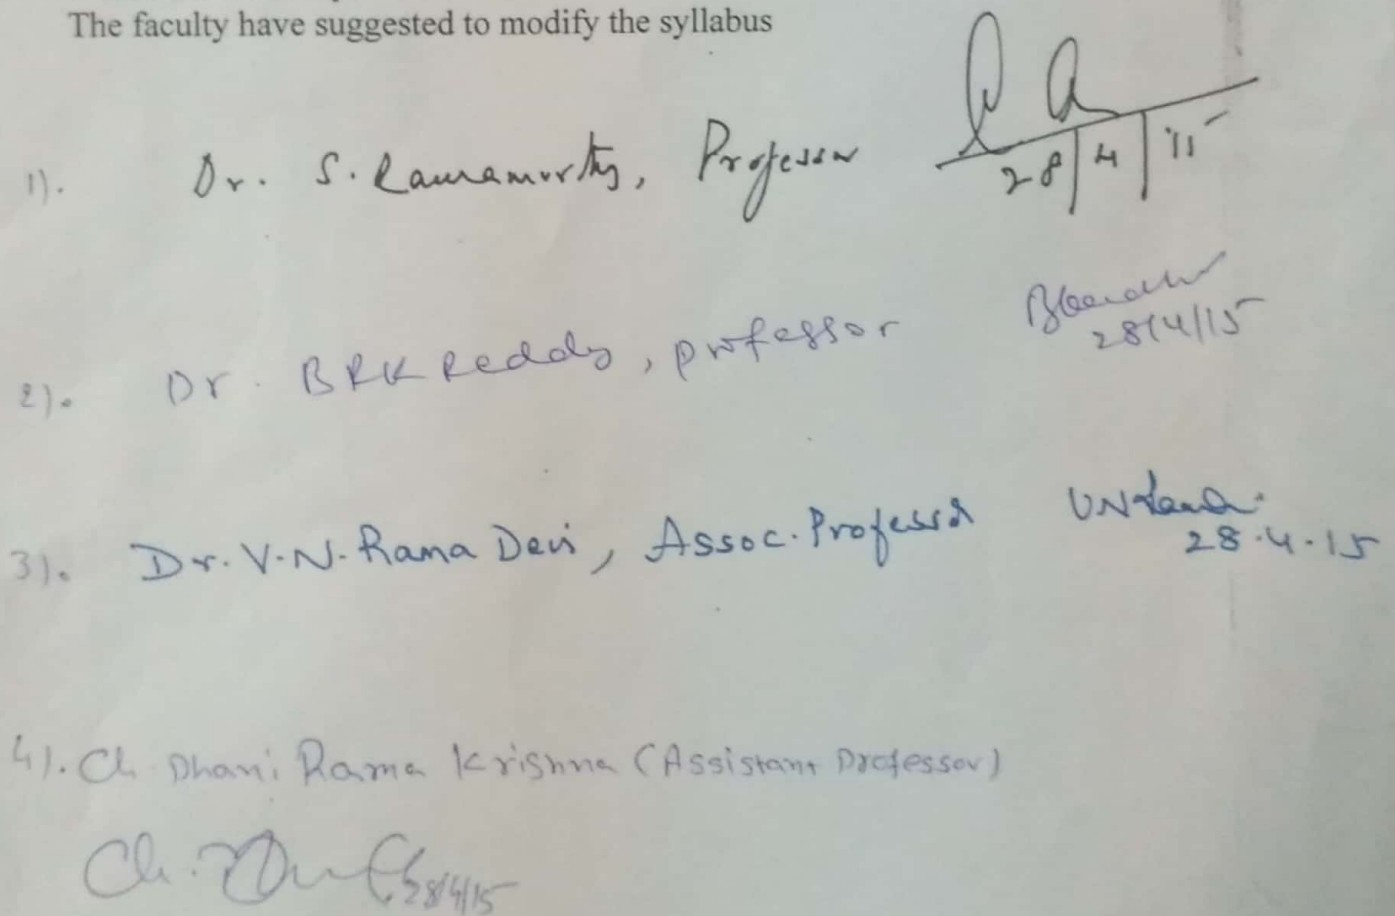 The faculty have suggested to modify the syllabus
1). Dr. S. Ramamurthy, Professor
28/4/15
2). Dr. BRK Reddy, professor
28/4/15
3). Dr. V. N. Rama Devi, Assoc. Professor
28.4.15
4). Ch. Dhani Rama Krishna (Assistant Professor)
Ch.
28/4/15